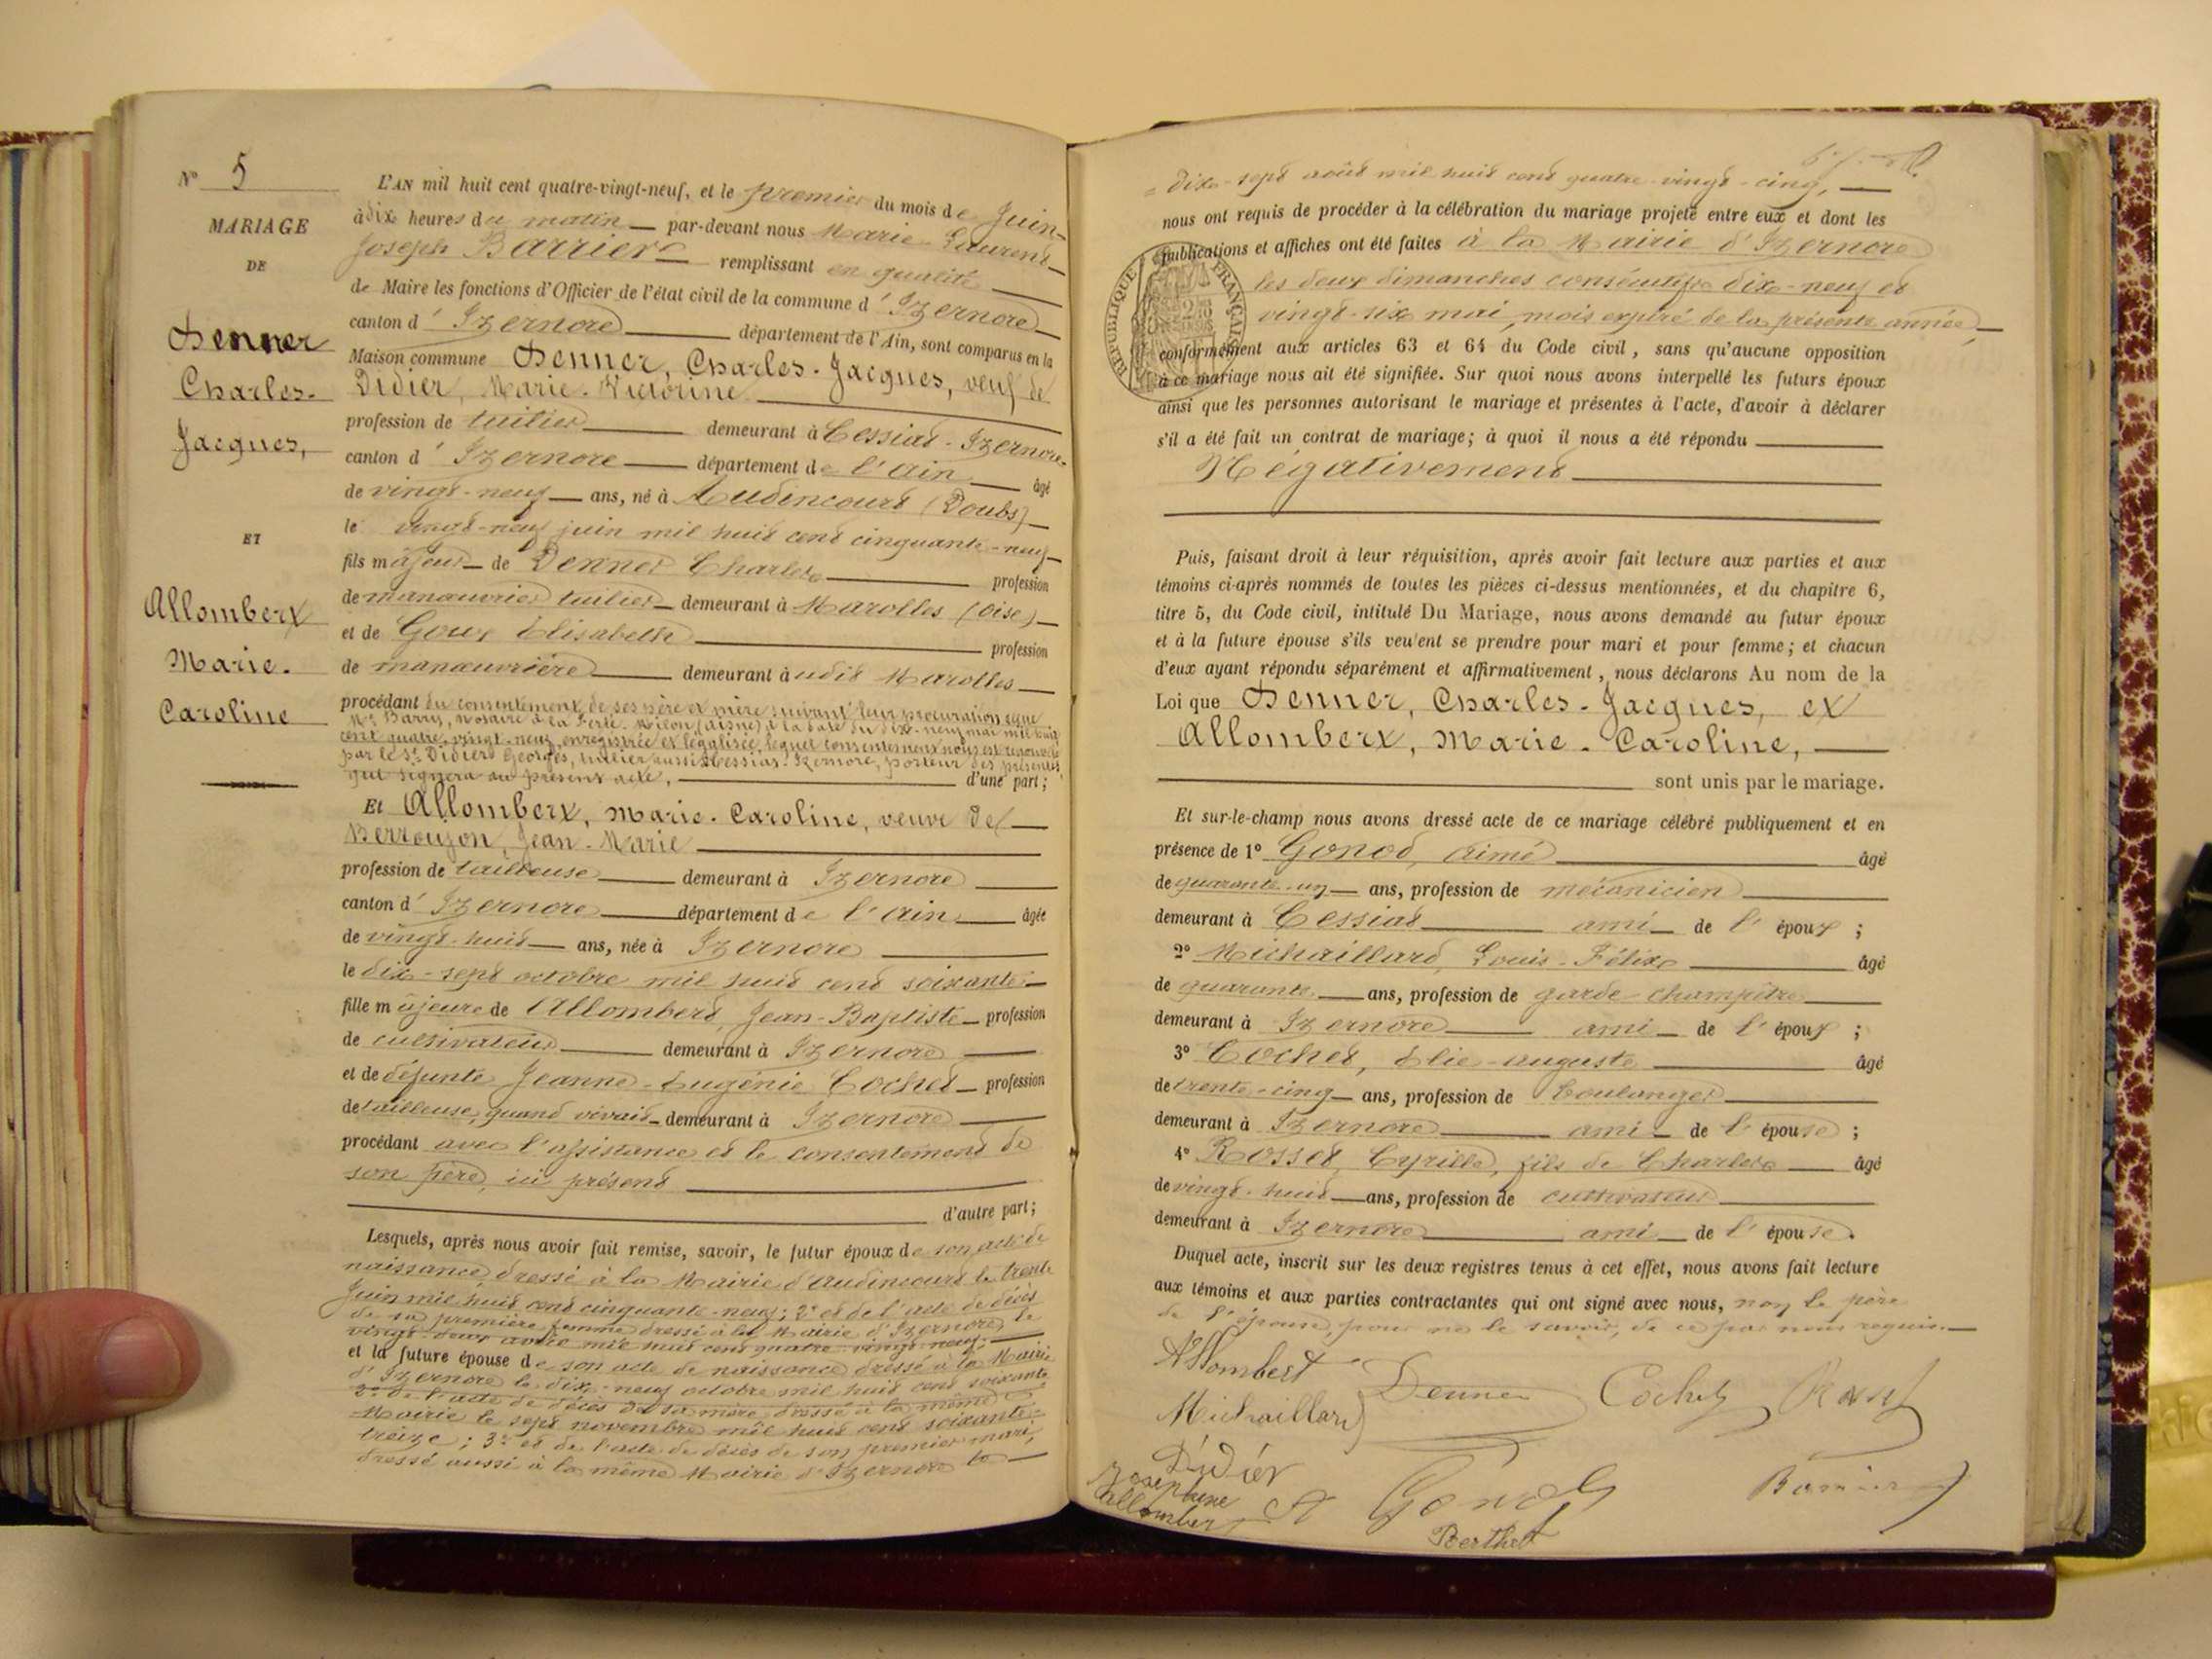 N° 5
MARIAGE
DE
Denner
Charles-
Jacques,
ET
Allombert
Marie-
Caroline
L'AN mil huit cent quatre-vingt-neuf, et le premier du mois de Juin
à dix heures du matin par-devant nous Marie-Laurent-
Joseph Barrier remplissant en qualité
de Maire les fonctions d'Officier de l'état civil de la commune d'Izernore
canton d'Izernore département de l'Ain, sont comparus en la
Maison commune Denner, Charles-Jacques, veuf de
Didier, Marie-Victorine
profession de tuilier demeurant à Cessiat-Izernore
canton d'Izernore département de l'Ain âgé
de vingt-neuf ans, né à Audincourt (Doubs)
le vingt-neuf juin mil huit cent cinquante-neuf
fils majeur de Denner Charles profession
de manouvrier tuilier demeurant à Marolles (Oise)
et de Goux Elisabeth profession
de manœuvrière demeurant à udit Marolles
procédant du consentement de ses père et mère suivant leur procuration reçue
Me Barry, notaire à La Ferté-Milon (Aisne) à la date du dix-neuf mai mil huit
cent quatre-vingt-neuf, enregistrée et légalisée, lequel consentement nous est renouvelé
par le Sr Didier Georges, tuilier aussi à Cessiat-Izernore, porteur des présentes
qui signera au présent acte, d'une part;
Et Allombert, Marie-Caroline, veuve de
Berroujon, Jean-Marie
profession de tailleuse demeurant à Izernore
canton d'Izernore département de l'Ain âgée
de vingt-huit ans, née à Izernore
le dix-sept octobre mil huit cent soixante
fille majeure de Allombert, Jean-Baptiste profession
de cultivateur demeurant à Izernore
et de défunte Jeanne-Eugénie Cochet profession
de tailleuse, quand vivait demeurant à Izernore
procédant avec l'assistance et le consentement de
son père, ici présent
d'autre part;
Lesquels, après nous avoir fait remise, savoir, le futur époux de son acte de
naissance dressé à la Mairie d'Audincourt le trente
Juin mil huit cent cinquante-neuf; 2° et de l'acte de décès
de sa première femme dressé à la Mairie d'Izernore le
vingt-deux avril mil huit cent quatre-vingt-neuf.
et la future épouse de son acte de naissance dressé à la Mairie
d'Izernore le dix-neuf octobre mil huit cent soixante
2° de l'acte de décès de sa mère dressé à la même
Mairie le sept novembre mil huit cent soixante-
treize; 3° et de l'acte de décès de son premier mari,
dressé aussi à la même Mairie d'Izernore le
dix-sept août mil huit cent quatre-vingt-cinq,
nous ont requis de procéder à la célébration du mariage projeté entre eux et dont les
publications et affiches ont été faites à la Mairie d'Izernore
les deux dimanches consécutifs dix-neuf et
vingt-six mai, mois expiré de la présente année,
conformément aux articles 63 et 64 du Code civil, sans qu'aucune opposition
à ce mariage nous ait été signifiée. Sur quoi nous avons interpellé les futurs époux
ainsi que les personnes autorisant le mariage et présentes à l'acte, d'avoir à déclarer
s'il a été fait un contrat de mariage; à quoi il nous a été répondu
Négativement
RÉPUBLIQUE FRANÇAISE
Puis, faisant droit à leur réquisition, après avoir fait lecture aux parties et aux
témoins ci-après nommés de toutes les pièces ci-dessus mentionnées, et du chapitre 6,
titre 5, du Code civil, intitulé Du Mariage, nous avons demandé au futur époux
et à la future épouse s'ils veulent se prendre pour mari et pour femme; et chacun
d'eux ayant répondu séparément et affirmativement, nous déclarons Au nom de la
Loi que Denner, Charles-Jacques, et
Allombert, Marie-Caroline,
sont unis par le mariage.
Et sur-le-champ nous avons dressé acte de ce mariage célébré publiquement et en
présence de 1° Gonod, Aimé âgé
de quarante-un ans, profession de mécanicien
demeurant à Cessiat ami de l'époux ;
2° Michaillard, Louis-Félix âgé
de quarante ans, profession de garde-champêtre
demeurant à Izernore ami de l'époux ;
3° Cochet, Elie-Auguste âgé
de trente-cinq ans, profession de boulanger
demeurant à Izernore ami de l'épouse ;
4° Rosset, Cyrille, fils de Charles âgé
de vingt-huit ans, profession de cultivateur
demeurant à Izernore ami de l'épouse.
Duquel acte, inscrit sur les deux registres tenus à cet effet, nous avons fait lecture
aux témoins et aux parties contractantes qui ont signé avec nous, non le père
de l'épouse, pour ne le savoir, de ce par nous requis.
Allombert Denner Cochet
Michaillard
Didier
Josephine
Allombert A Gonod Barrier
Berthet